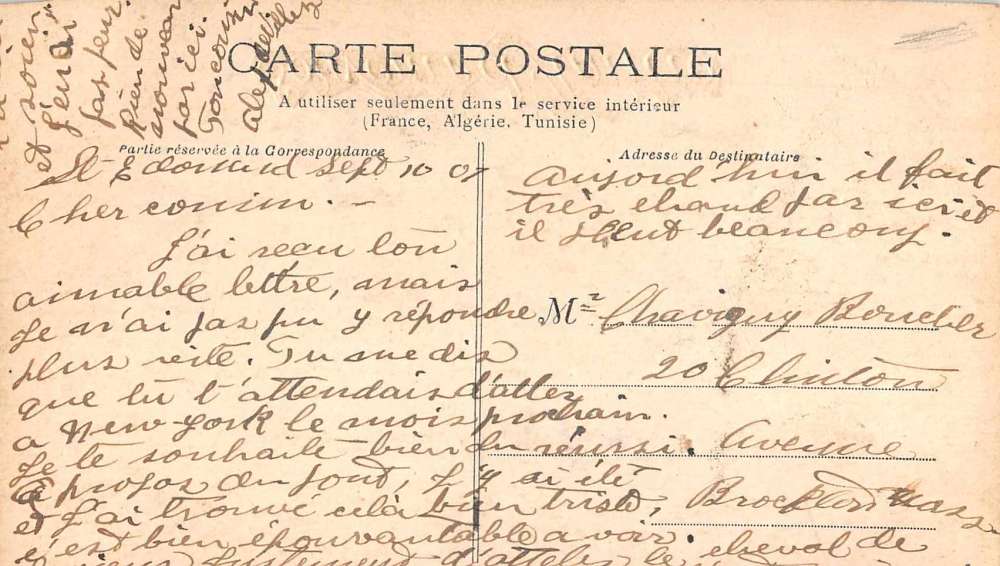 CARTE POSTALE
A utiliser seulement dans le service intérieur
(France, Algérie, Tunisie)
Partie réservée à la Correspondance
Adresse du Destinataire
St Edomud Sept 10 07
Cher cousin. -
J'ai reçu ton
aimable lettre, mais
Je n'ai pas pu y répondre
plus vite. Tu me dis
que tu t'attendais d'aller
a New-york le mois prochain.
Je te souhaite bien du réussi.
à propos du pont, J'y ai été
et J'ai trouvé celà bien triste,
c'est bien épouvantable a voir.
justement d'atteler le cheval de
et soien
J'en ai
pas peur
Rien de
nouveau
par ici
Ton cousin
aujord'hui il fait
très chaud par ici et
il pleut beaucoup.
Mr Chavigny Boucher
20 Clinton
Avenue
Brockton Mass